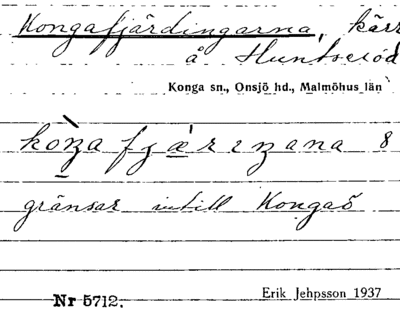 Kongafjärdingarna, kärr
å Huntseröd
Konga sn., Onsjö hd., Malmöhus län
gränsar intill Kongaö
Nr 5712.
Erik Jehpsson 1937